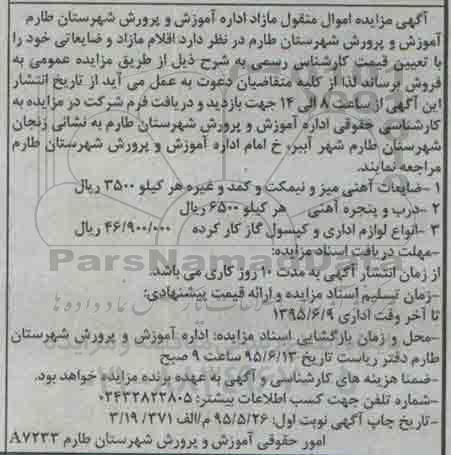 آگهی مزایده اموال منقول مازاد اداره آموزش و پرورش شهرستان طارم
آموزش و پرورش شهرستان طارم در نظر دارد اقلام مازاد و ضایعاتی خود را
با تعیین قیمت کارشناس رسمی به شرح ذیل از طریق مزایده عمومی به
فروش برساند لذا از کلیه متقاضیان دعوت به عمل می آید از تاریخ انتشار
این آگهی از ساعت ۸ الی ۱۴ جهت بازدید و دریافت فرم شرکت در مزایده به
کارشناسی حقوقی اداره آموزش و پرورش شهرستان طارم به نشانی زنجان
شهرستان طارم شهر آببر، خ امام اداره آموزش و پرورش شهرستان طارم
مراجعه نمایند.
۱ -ضایعات آهنی میز و نیمکت و کمد و غیره هر کیلو ۳۵۰۰ ریال
۲ -درب و پنجره آهنی هر کیلو ۶۵۰۰ ریال
۳ -انواع لوازم اداری و کپسول گاز کار کرده ۴۶/۹۰۰/۰۰۰ ریال
-مهلت دریافت اسناد مزایده:
از زمان انتشار آگهی به مدت ۱۰ روز کاری می باشد.
-زمان تسلیم اسناد مزایده و ارائه قیمت پیشنهادی:
تا آخر وقت اداری ۱۳۹۵/۶/۹
-محل و زمان بازگشایی اسناد مزایده: اداره آموزش و پرورش شهرستان
طارم دفتر ریاست تاریخ ۹۵/۶/۱۳ ساعت ۹ صبح
-ضمنا هزینه های کارشناسی و آگهی به عهده برنده مزایده خواهد بود.
-شماره تلفن جهت کسب اطلاعات بیشتر: ۰۲۴۳۲۸۲۲۸۰۵
-تاریخ چاپ آگهی نوبت اول: ۹۵/۵/۲۶ م/الف ۳۷۱/ ۳/۱۹
امور حقوقی آموزش و پرورش شهرستان طارم A۷۲۳۳
ParsNamadData